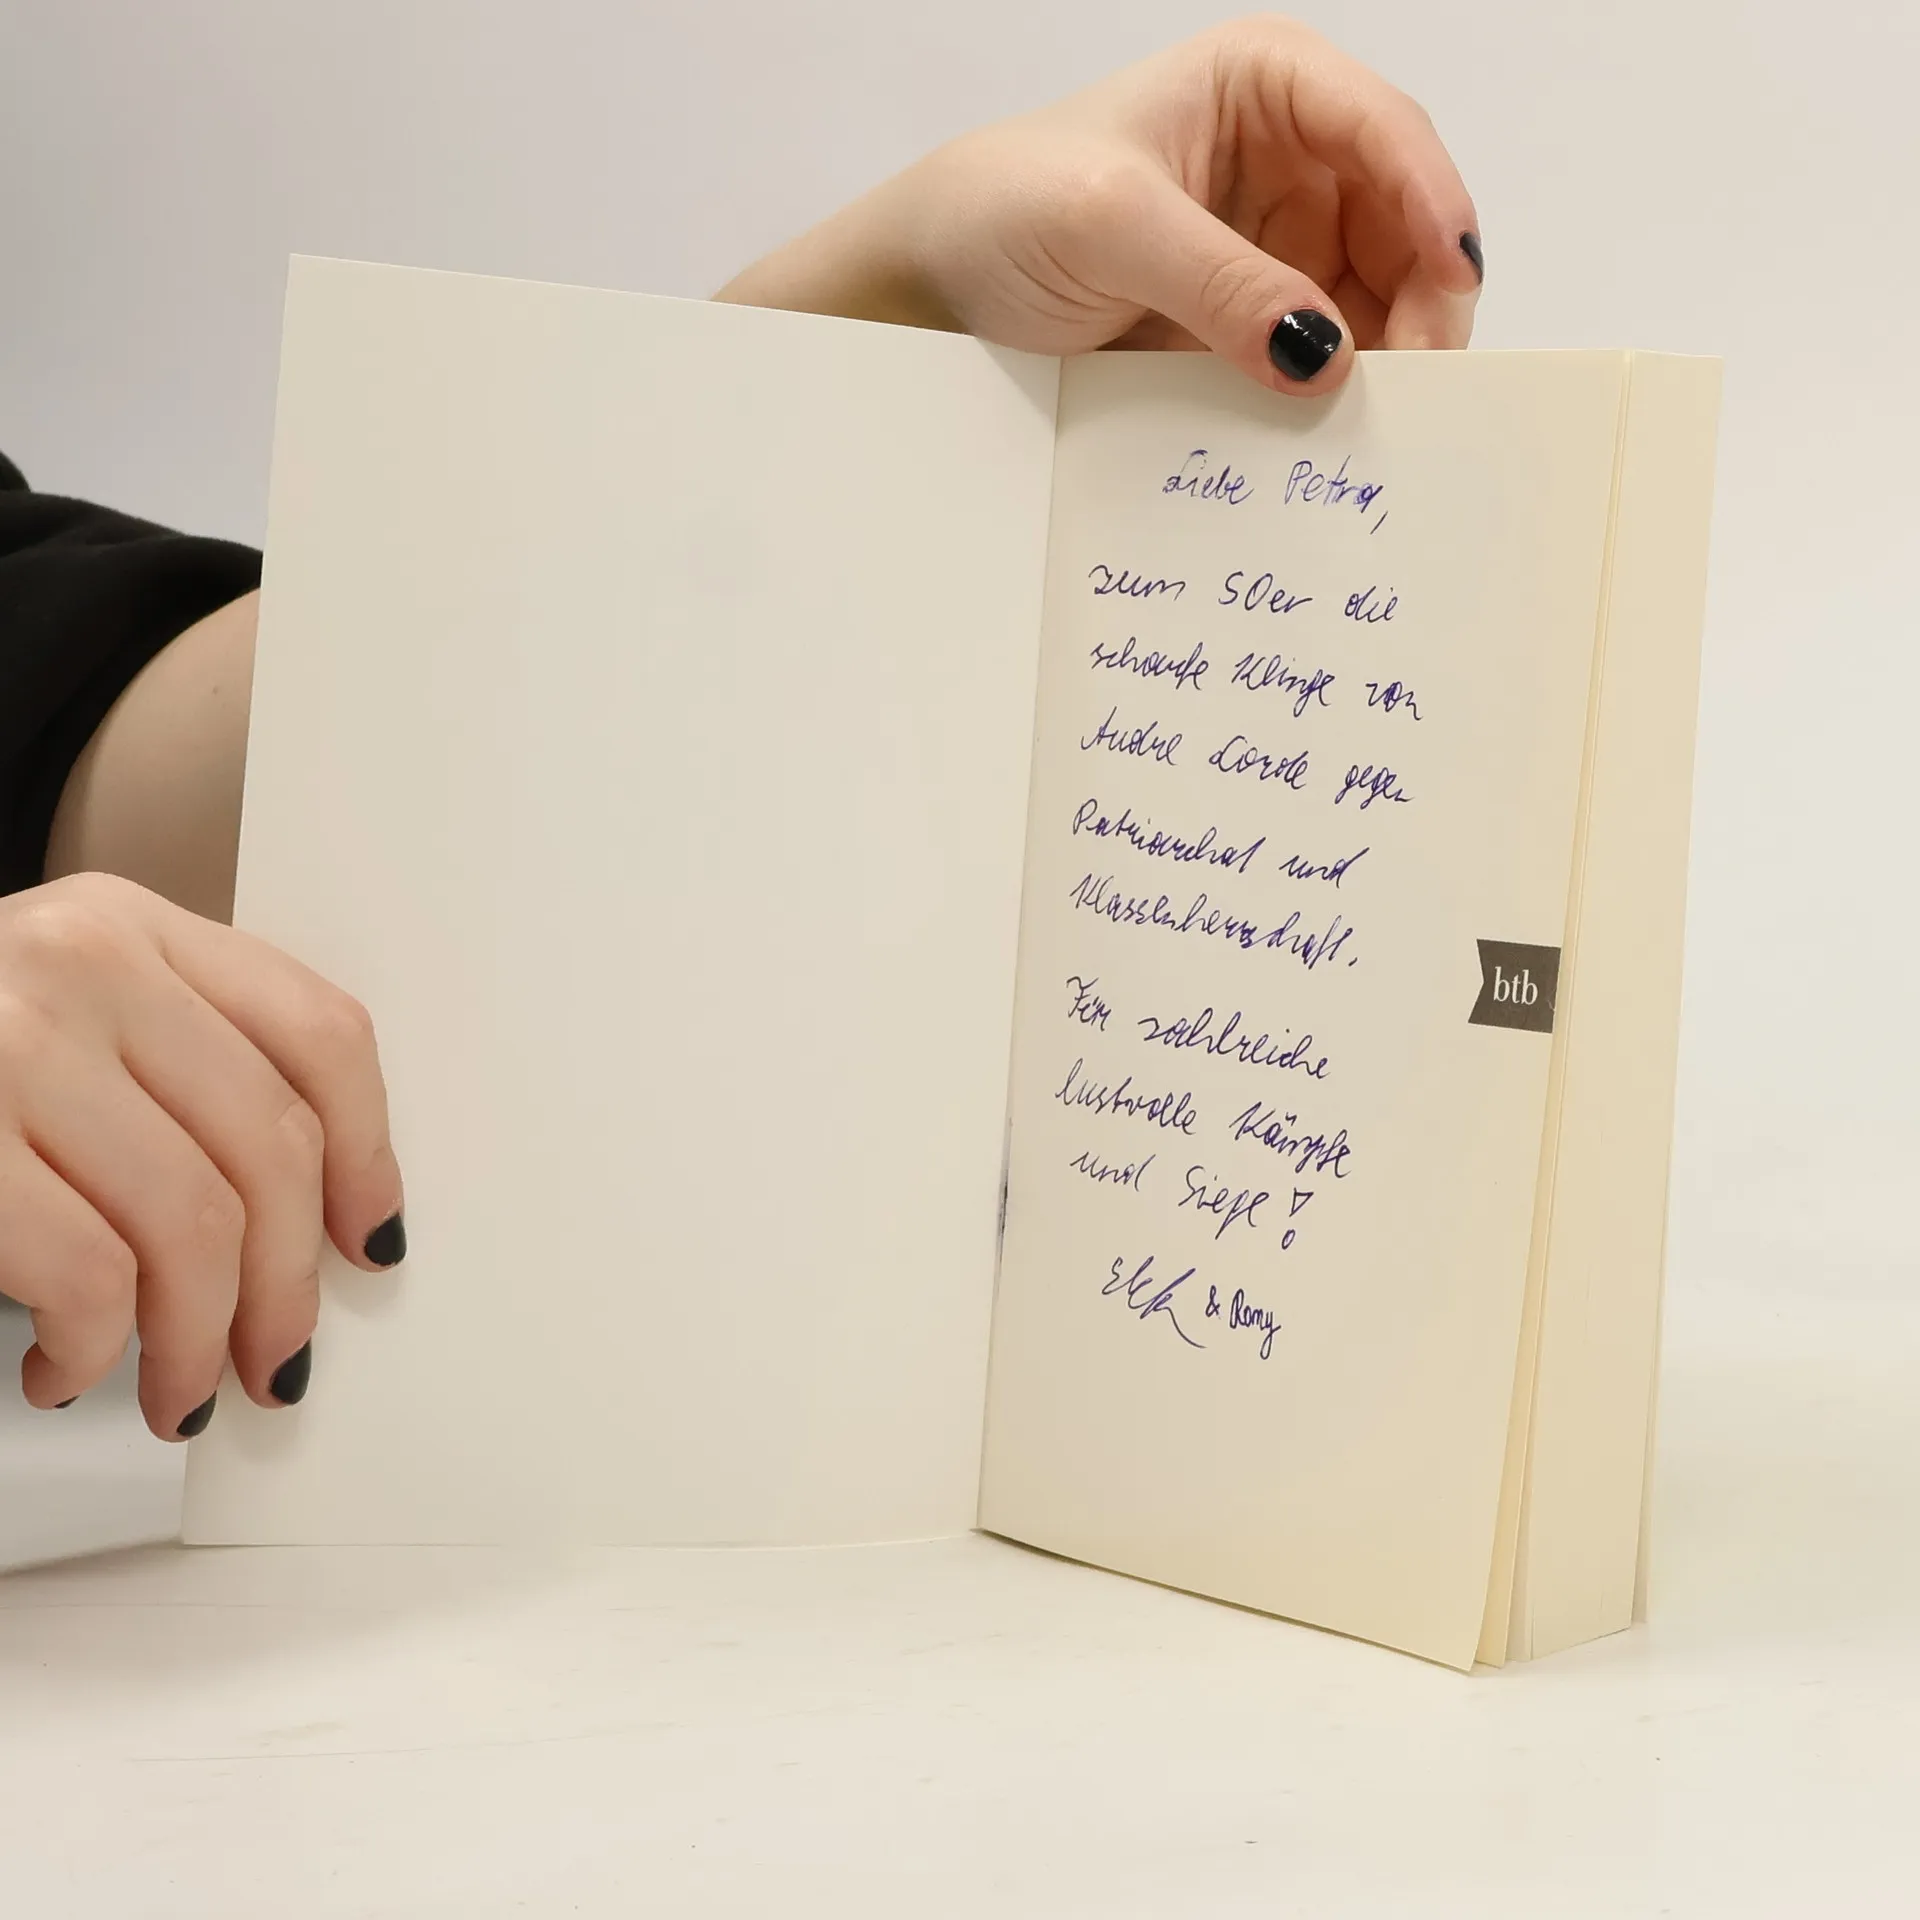 Liebe Petra,
zum 50er die
scharfe Klinge von
Audre Lorde gegen
Patriarchat und
Klassenherrschaft.
Für zahlreiche
lustvolle Kämpfe
und Siege!
& Romy
btb